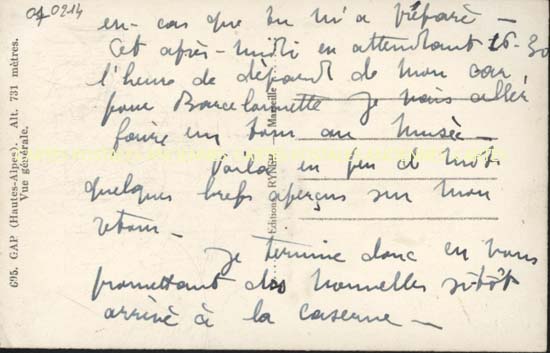 040214
en-cas que tu m'a préparé —
Cet après-midi en attendant 16-30
l'heure de départ de mon car
pour Barcelonnette je vais aller
faire un tour au Musée —
Voilà en peu de mots
quelques brefs aperçus sur mon
retour —
Je termine donc en vous
promettant des nouvelles sitôt
arrivé à la caserne —
695. GAP (Hautes-Alpes). Alt. 731 mètres.
Vue générale.
Editions RYNER Marseille